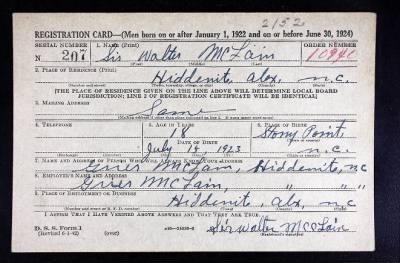 2152
REGISTRATION CARD—(Men born on or after January 1, 1922 and on or before June 30, 1924)
SERIAL NUMBER 1. NAME (Print) ORDER NUMBER
N 207 Sir Walter McLain 10940
(First) (Middle) (Last)
2. PLACE OF RESIDENCE (Print)
Hiddenite, Alex, n.c.
(Number and street) (Town, township, village, or city) (County) (State)
[THE PLACE OF RESIDENCE GIVEN ON THE LINE ABOVE WILL DETERMINE LOCAL BOARD
JURISDICTION; LINE 2 OF REGISTRATION CERTIFICATE WILL BE IDENTICAL]
3. MAILING ADDRESS
Same
4. TELEPHONE 5. AGE IN YEARS 6. PLACE OF BIRTH
18 Stony Point
DATE OF BIRTH
July 14, 1923 n.c.
7. NAME AND ADDRESS OF PERSON WHO WILL ALWAYS KNOW YOUR ADDRESS
Grier McLain, Hiddenite, n.c.
8. EMPLOYER'S NAME AND ADDRESS
Grier McLain, " " "
9. PLACE OF EMPLOYMENT OR BUSINESS
Hiddenite, Alex, n.c.
I AFFIRM THAT I HAVE VERIFIED ABOVE ANSWERS AND THAT THEY ARE TRUE.
D. S. S. Form 1
(Revised 6-1-42) (over) Sir Walter McClain
(Registrant's signature)